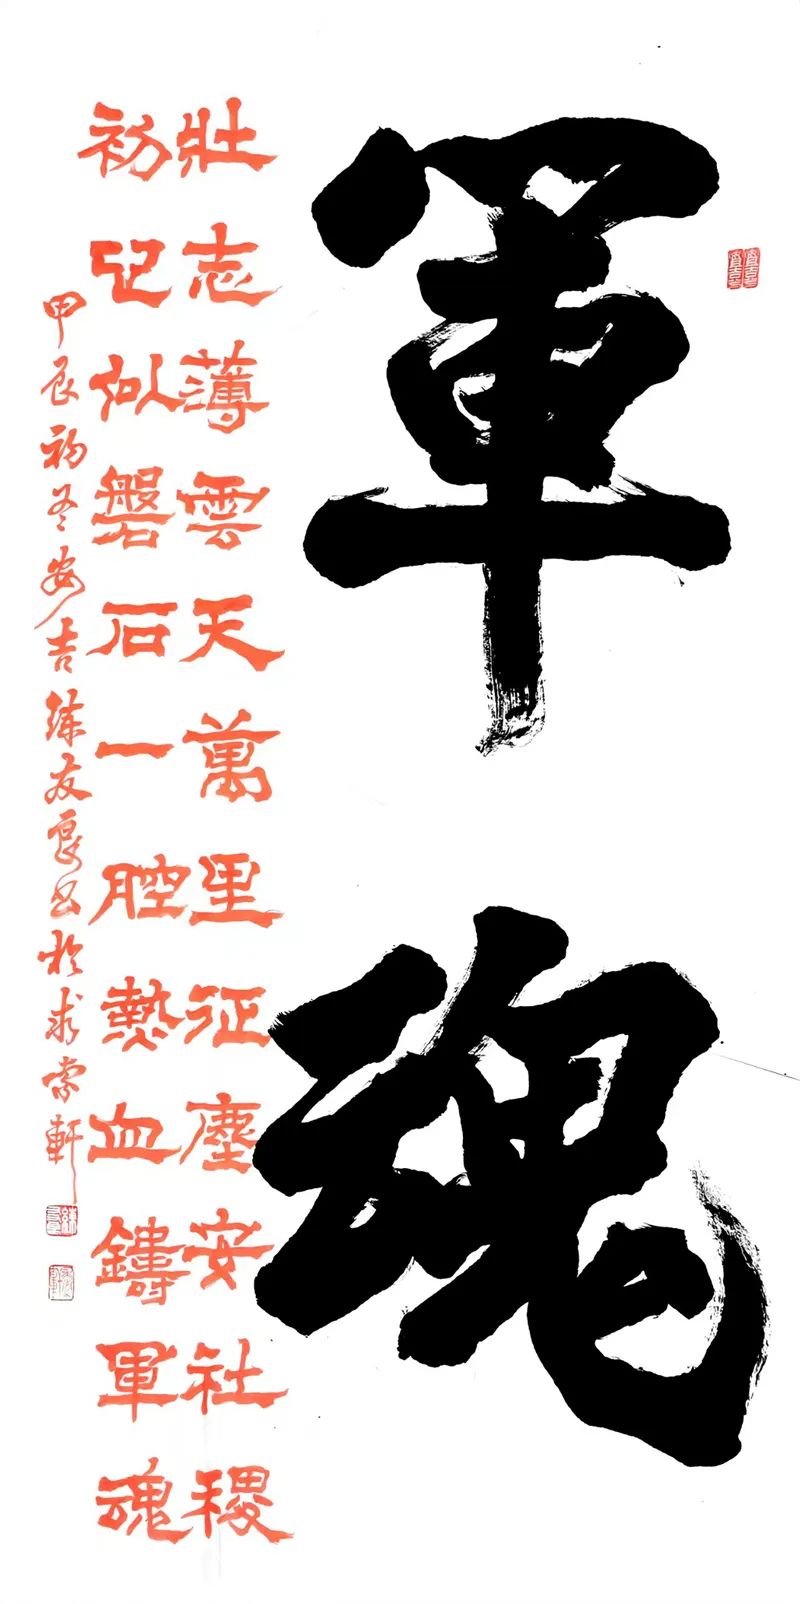 軍魂
壯志薄雲天萬里征塵安社稷
初心似磐石一腔熱血鑄軍魂
甲辰初冬安吉練友良书於求索軒